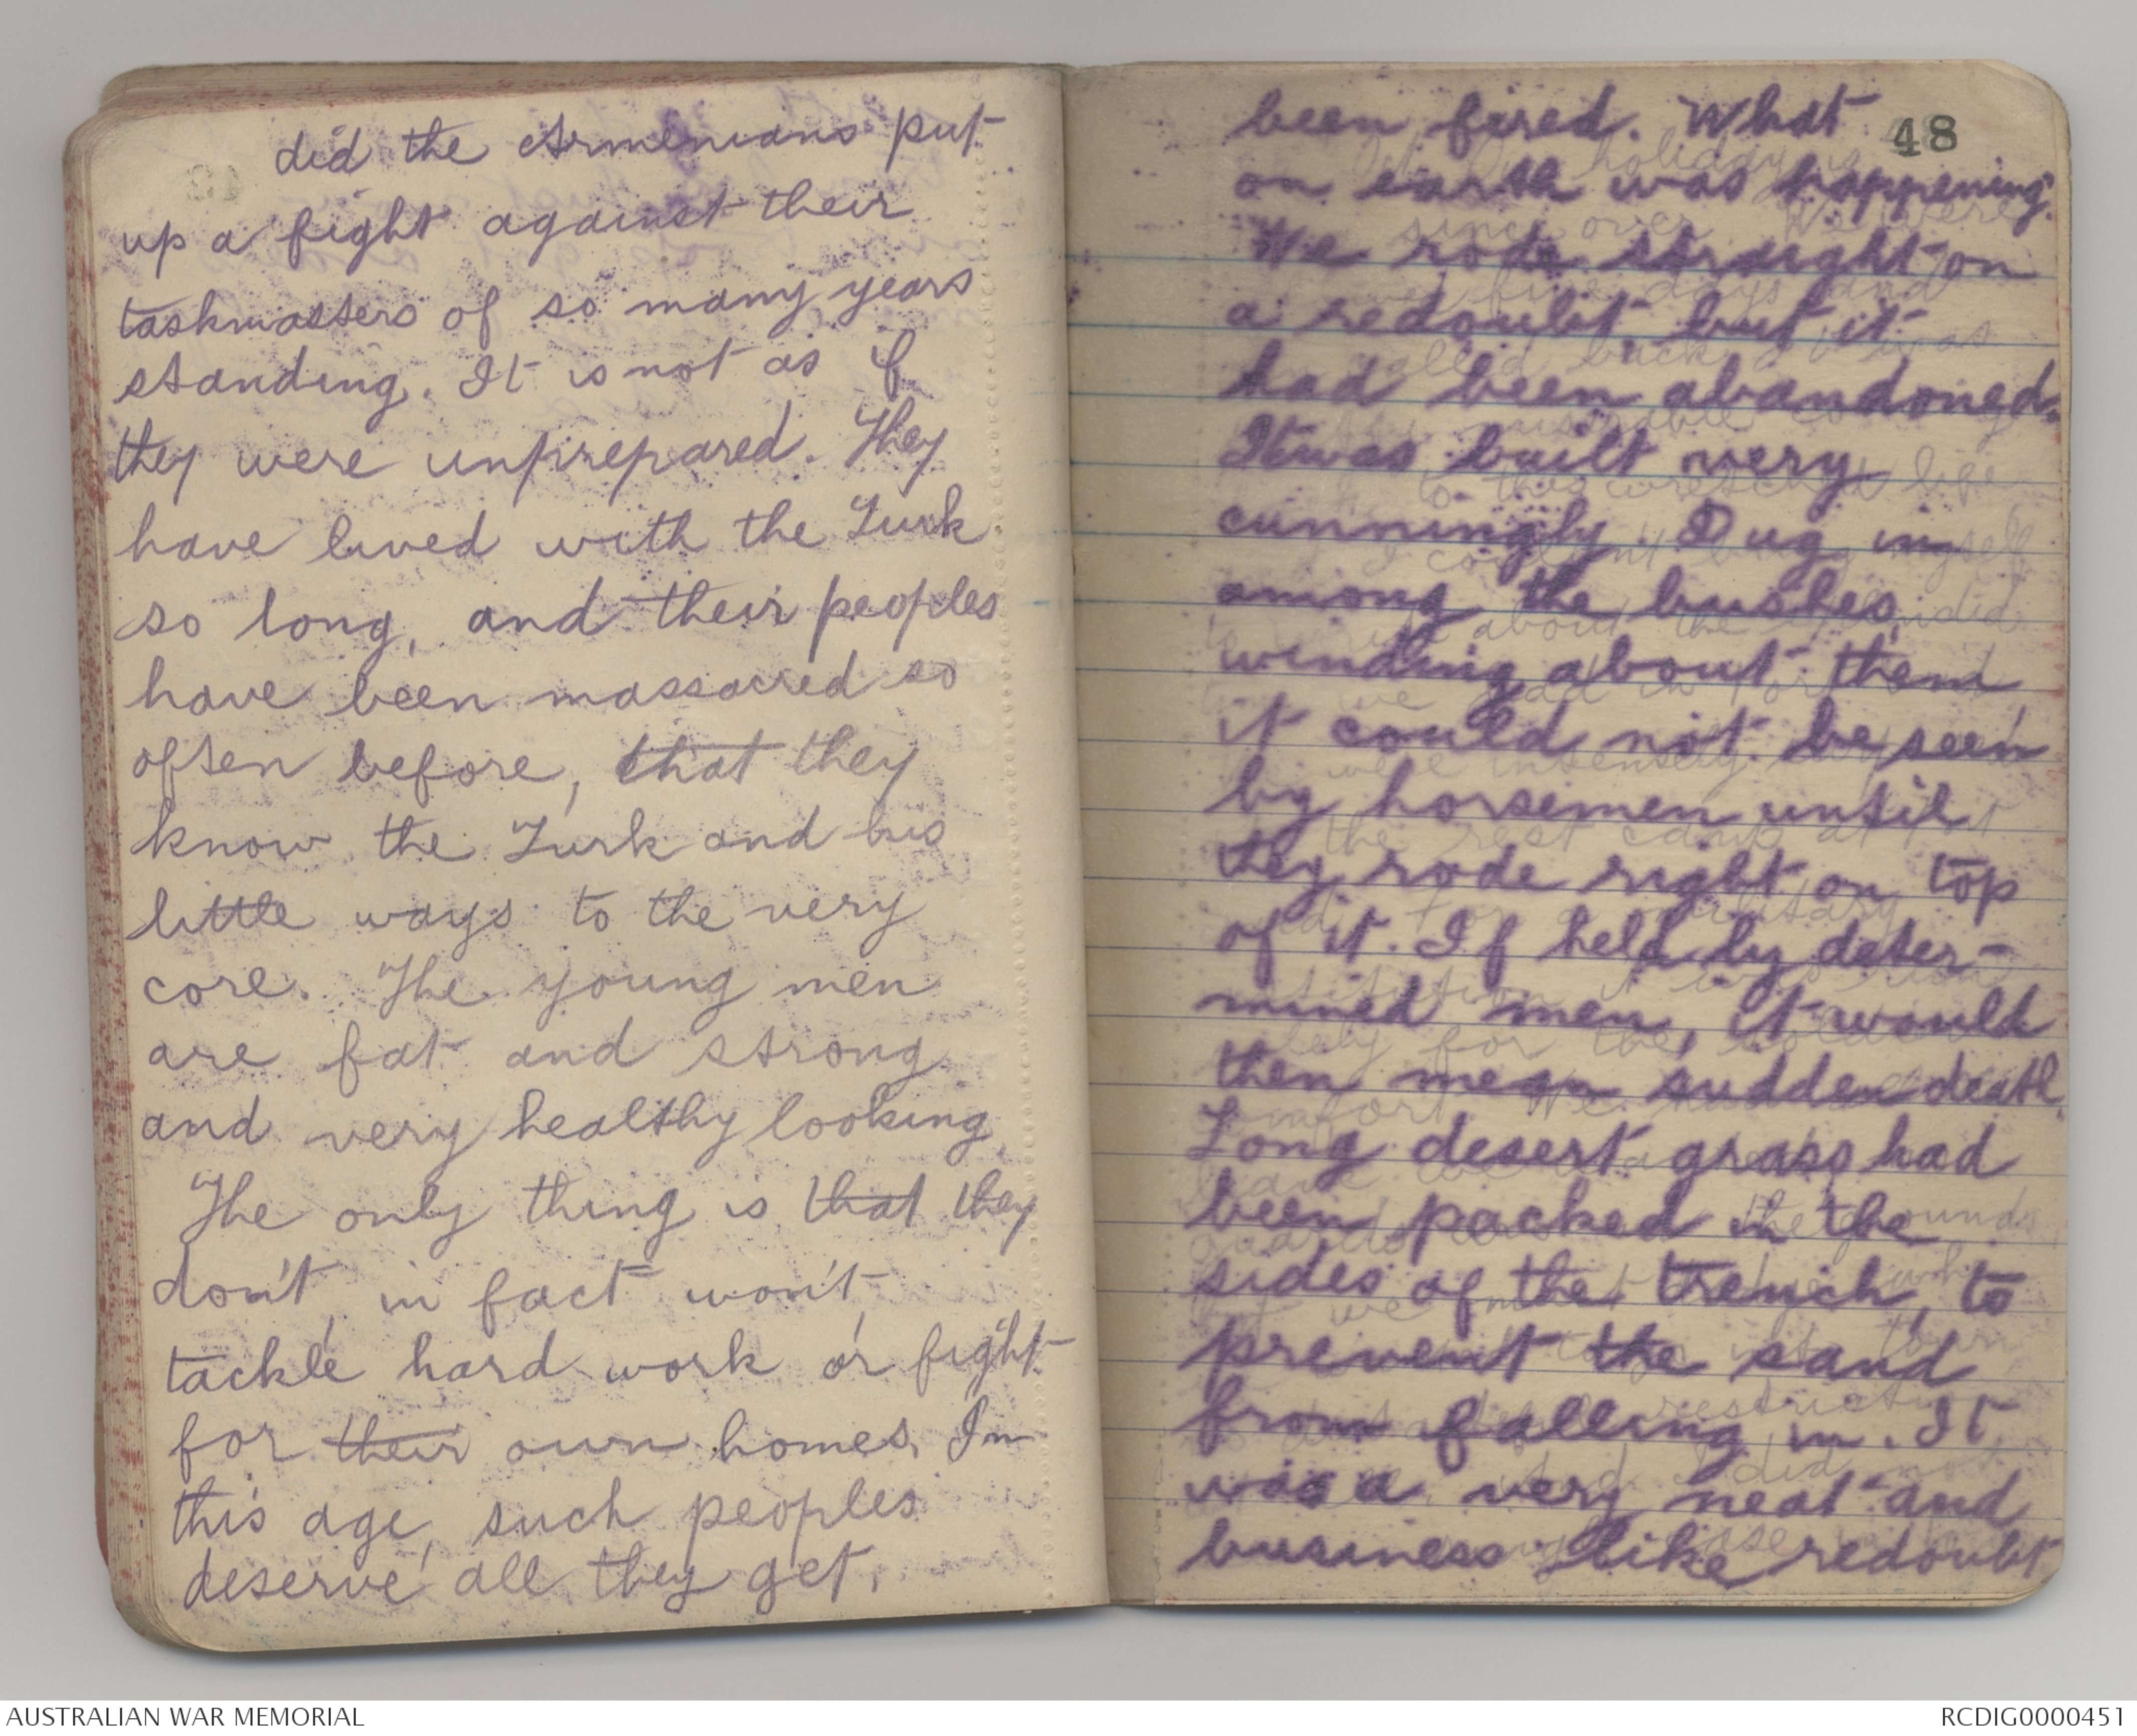 did the Armenians put
up a fight against their
taskmasters of so many years
standing. It is not as if
they were unprepared. They
have lived with the Turk
so long, and their peoples
have been massacred so
often before, that they
know the Turk and his
little ways to the very
core. The young men
are fat and strong
and very healthy looking.
The only thing is that they
don't, in fact won't,
tackle hard work or fight
for their own homes. In
this age, such peoples
deserve all they get.
48
been fired. What
on earth was happening.
We rode straight on
a redoubt, but it
had been abandoned.
It was built very
cunningly. Dug in
among the bushes,
winding about them,
it could not be seen
by horsemen until
they rode right on top
of it. If held by deter-
mined men, it would
then mean sudden death.
Long desert grass had
been packed in the
sides of the trench, to
prevent the sand
from falling in. It
was a very neat and
business like redoubt
AUSTRALIAN WAR MEMORIAL
RCDIG0000451